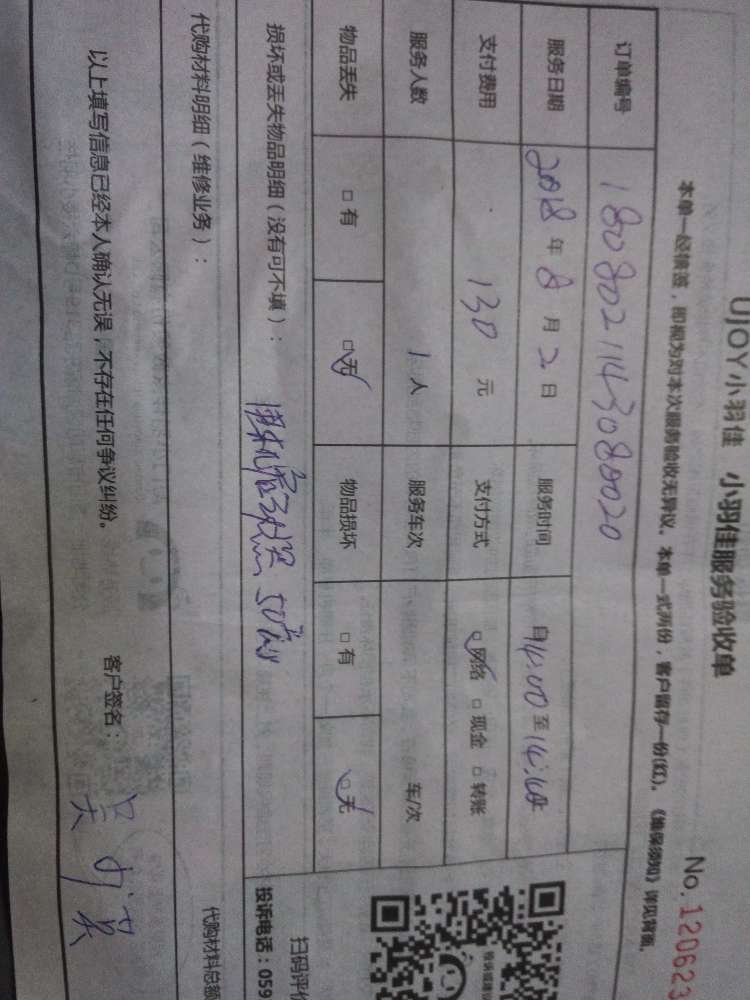 UJOY小羽佳 小羽佳服务验收单
No. 120623
本单一经填签，即视为对本次服务验收无异议。本单一式两份，客户留存一份(红)。《维保须知》详见背面。
订单编号 1808021143080020
服务日期 2018年8月2日 服务时间 自14:00至14:40
支付费用 130元 支付方式 □网络 □现金 □转账
服务人数 1人 服务车次 车/次
物品丢失 □有 □无 物品损坏 □有 □无
损坏或丢失物品明细（没有可不填）： 50
代购材料明细（维修业务）：
代购材料总额
以上填写信息已经本人确认无误，不存在任何争议纠纷。 客户签名：
扫码评价
投诉电话：059